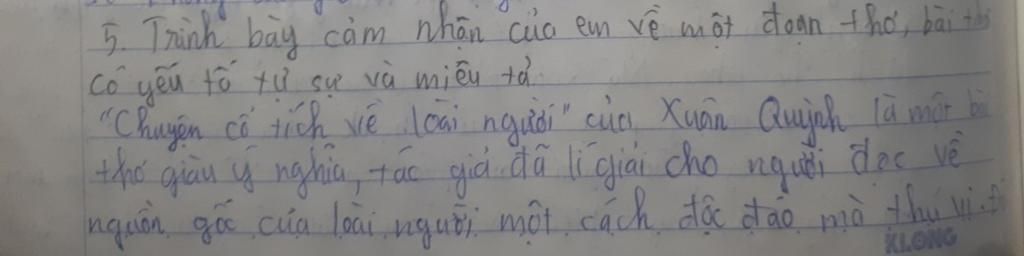 5. Trình bày cảm nhận của em về một đoạn thơ, bài thơ
có yếu tố tự sự và miêu tả.
"Chuyện cổ tích về loài người" của Xuân Quỳnh là một bài
thơ giàu ý nghĩa, tác giả đã lí giải cho người đọc về
nguồn gốc của loài người một cách độc đáo mà thú vị.
KLONG